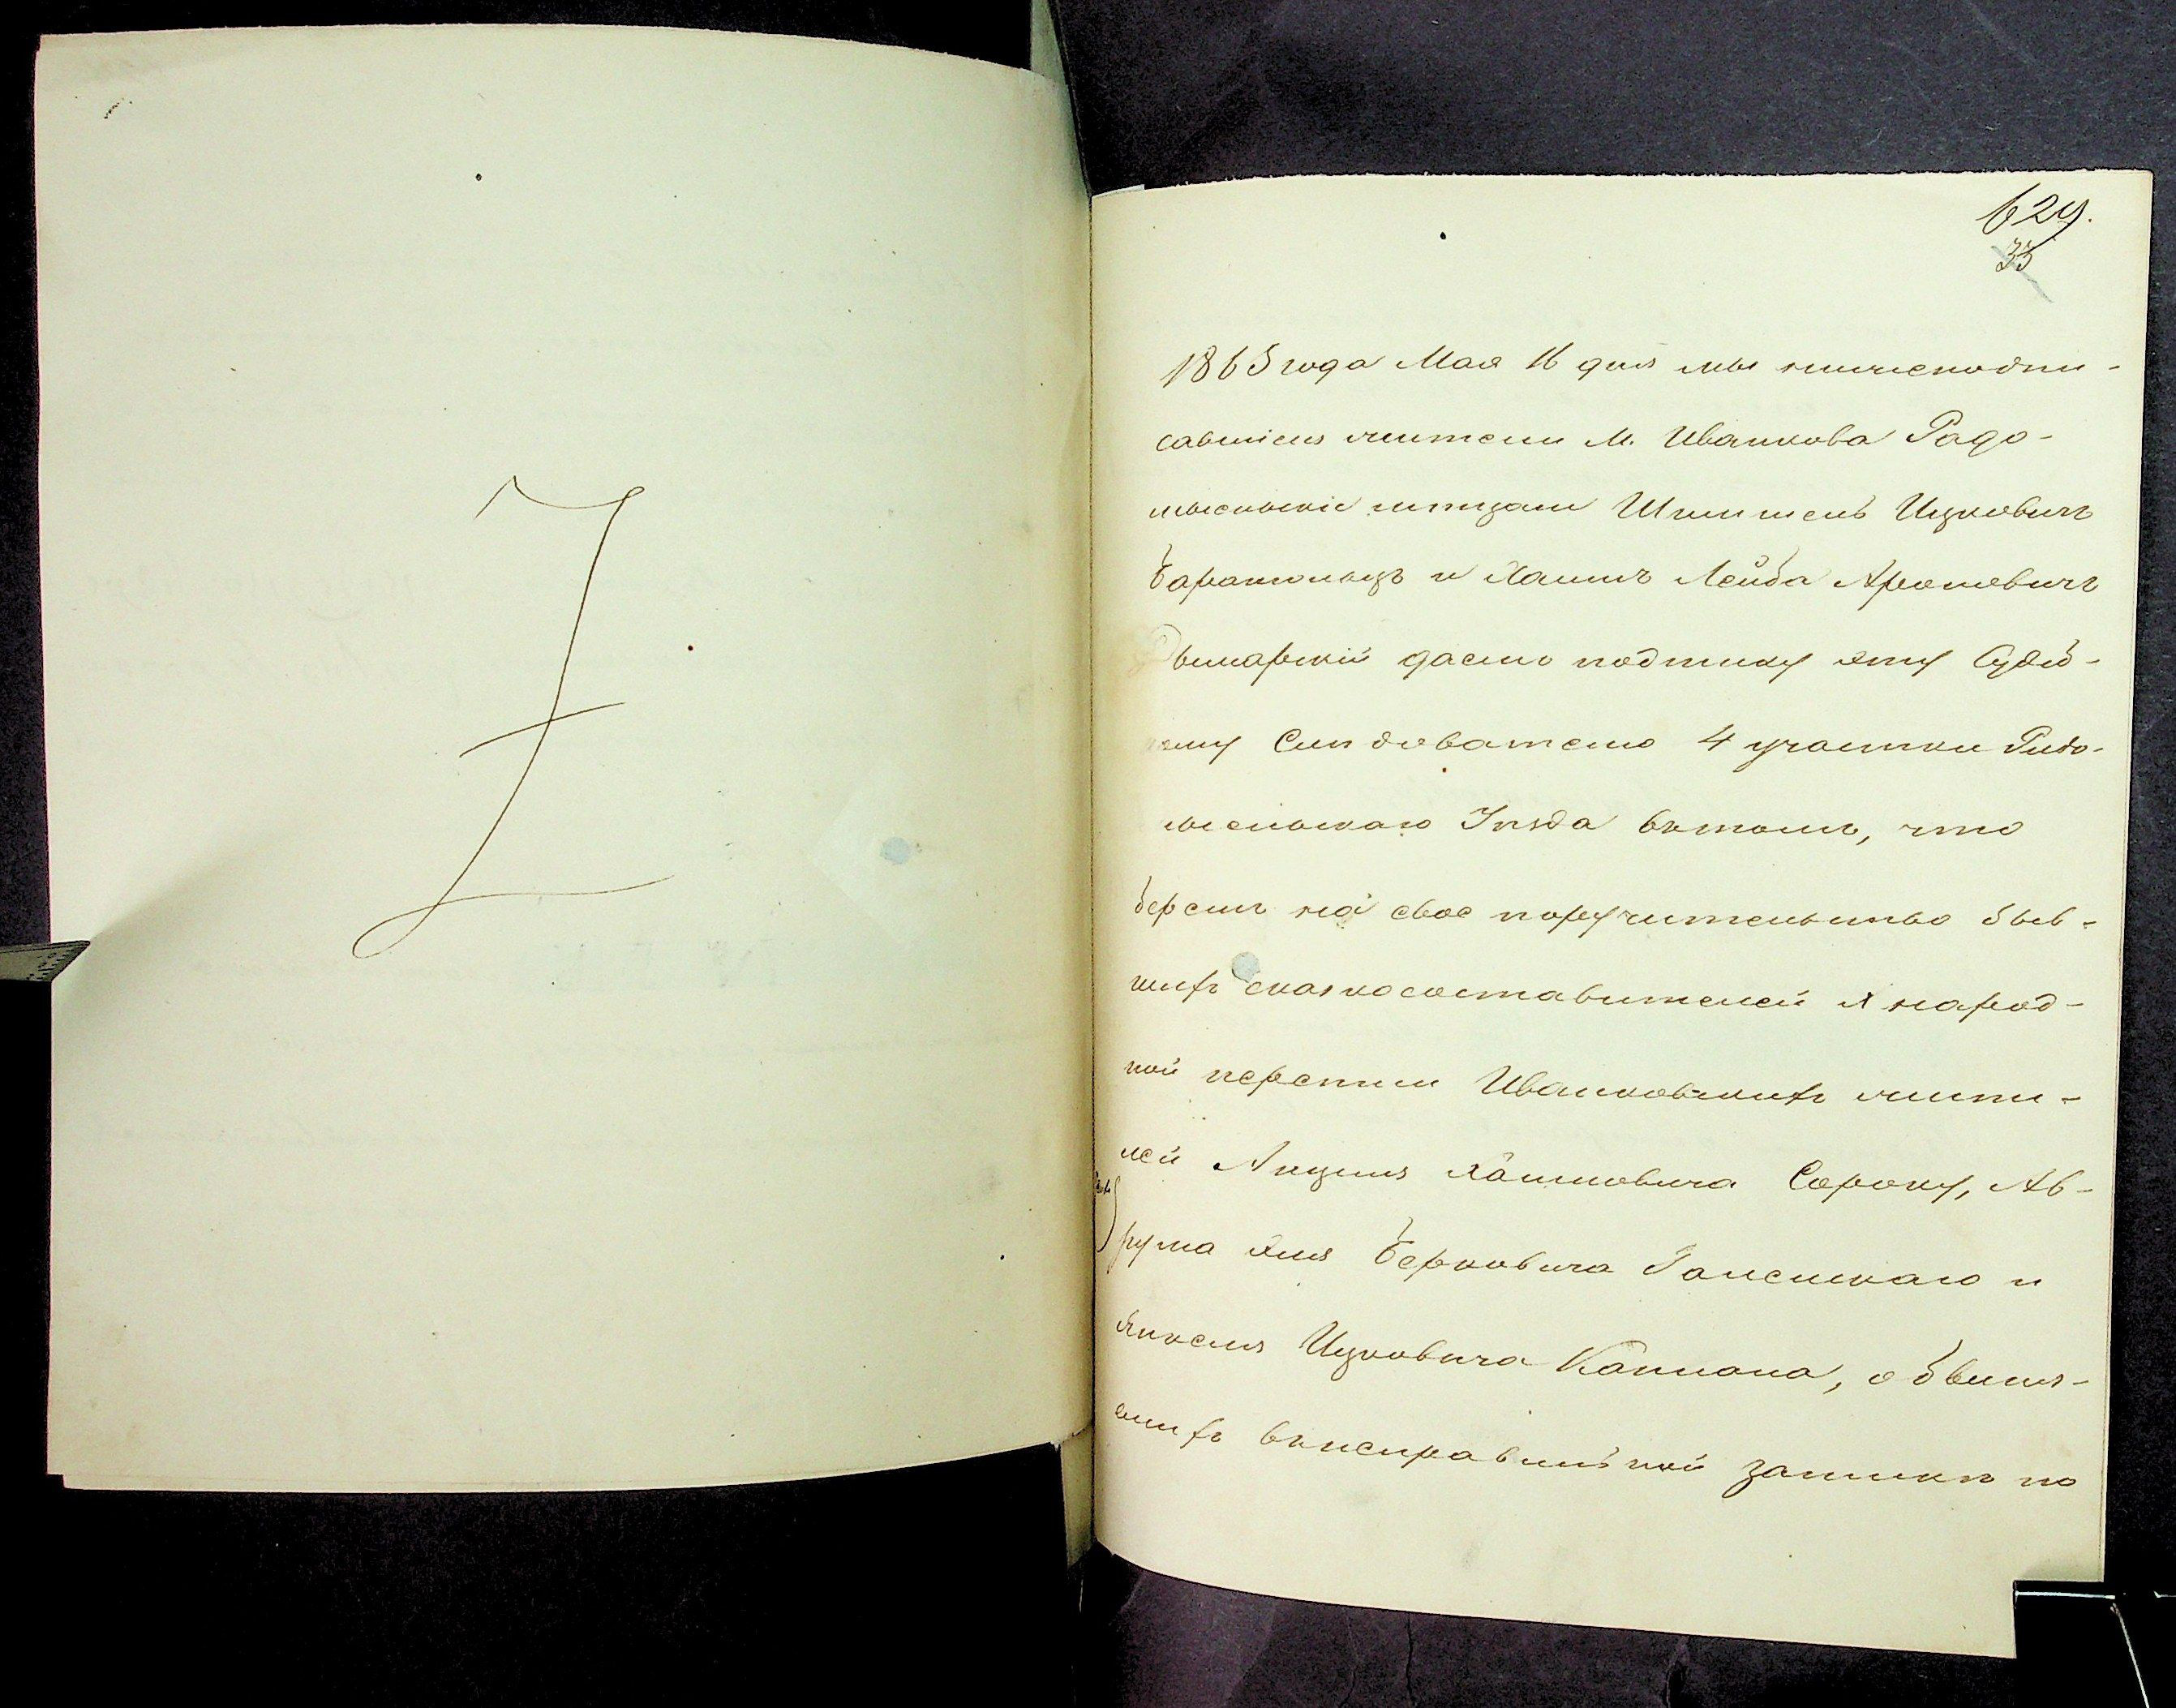 629.
33
1863 года Мая 16 дня мы нижеподпи-
савшiеся жители М. Иванкова Радо-
мысльскiе мещане Шмилель Ицковичъ
Баранникъ и Хаимъ Лейба Ароновичъ
Винарскiй даемъ подписку эту Судеб-
ному Следователю 4 участка Радо-
мысльскаго Уезда въ томъ, что
беремъ на свое поручительство быв-
шихъ сказкосоставителей X народ-
ной переписи Иванковскихъ жите-
лей Анцеля Хаимовича Сороку, Ав-
рума Эля Берковича Галенскаго и
Янкеля Ицковича Каплана, обвиня-
емыхъ въ неправильной запискѣ по